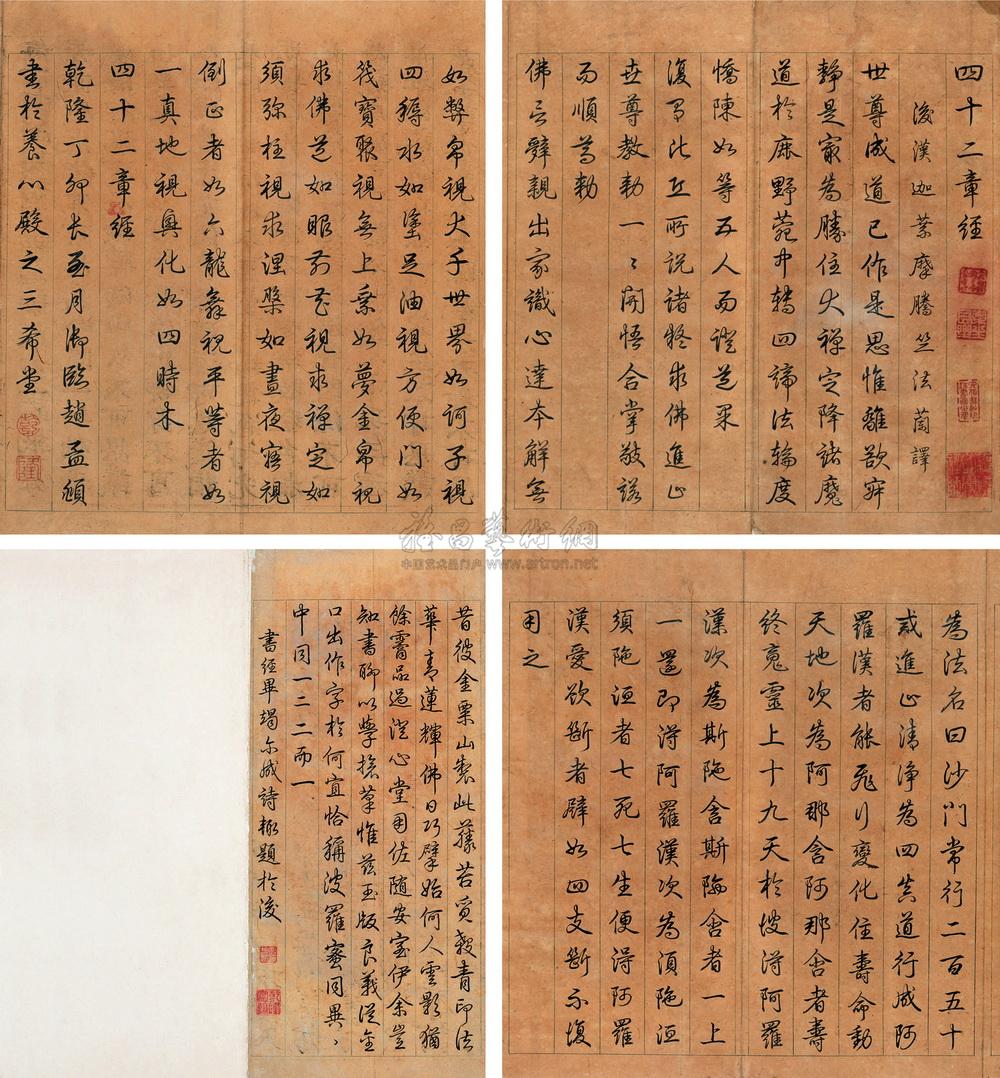 四十二章經
後漢迦葉摩騰竺法蘭譯
世尊成道已作是思惟離欲寂
靜是最為勝住大禪定降諸魔
道於鹿野苑中轉四諦法輪度
憍陳如等五人而證道果
復有比丘所說諸疑求佛進止
世尊教勅一〻開悟合掌敬諾
而順尊勅
佛言辭親出家識心達本解無
為法名曰沙門常行二百五十
戒進止清淨為四真道行成阿
羅漢者能飛行變化住壽命動
天地次為阿那含阿那含者壽
終魂靈上十九天於彼得阿羅
漢次為斯陁含斯陁含者一上
一還即得阿羅漢次為須陁洹
須陁洹者七死七生便得阿羅
漢愛欲斷者譬如四支斷不復
用之
如弊帛視大千世界如訶子視
四耨水如塗足油視方便門如
筏寶聚視無上乘如夢金帛視
求佛道如眼前花視求禪定如
須弥柱視求涅槃如晝夜寤視
倒正者如六龍舞視平等者如
一真地視興化如四時木
四十二章經
乾隆丁卯長至月御臨趙孟頫
書於養心殿之三希堂
乾
隆
昔彼金粟山製此藤苔質穀青印法
華青蓮輝佛日巧擘始何人雲影猶
餘霱品過澄心堂用佐隨安室伊余豈
知書聊以學搶草惟茲玉版良義從金
口出作字於何宜恰稱波羅蜜同異〻
中同一三二而一
書經畢尔成詩輒題於後
雅昌藝術網
中国艺术品门户 www.artron.net